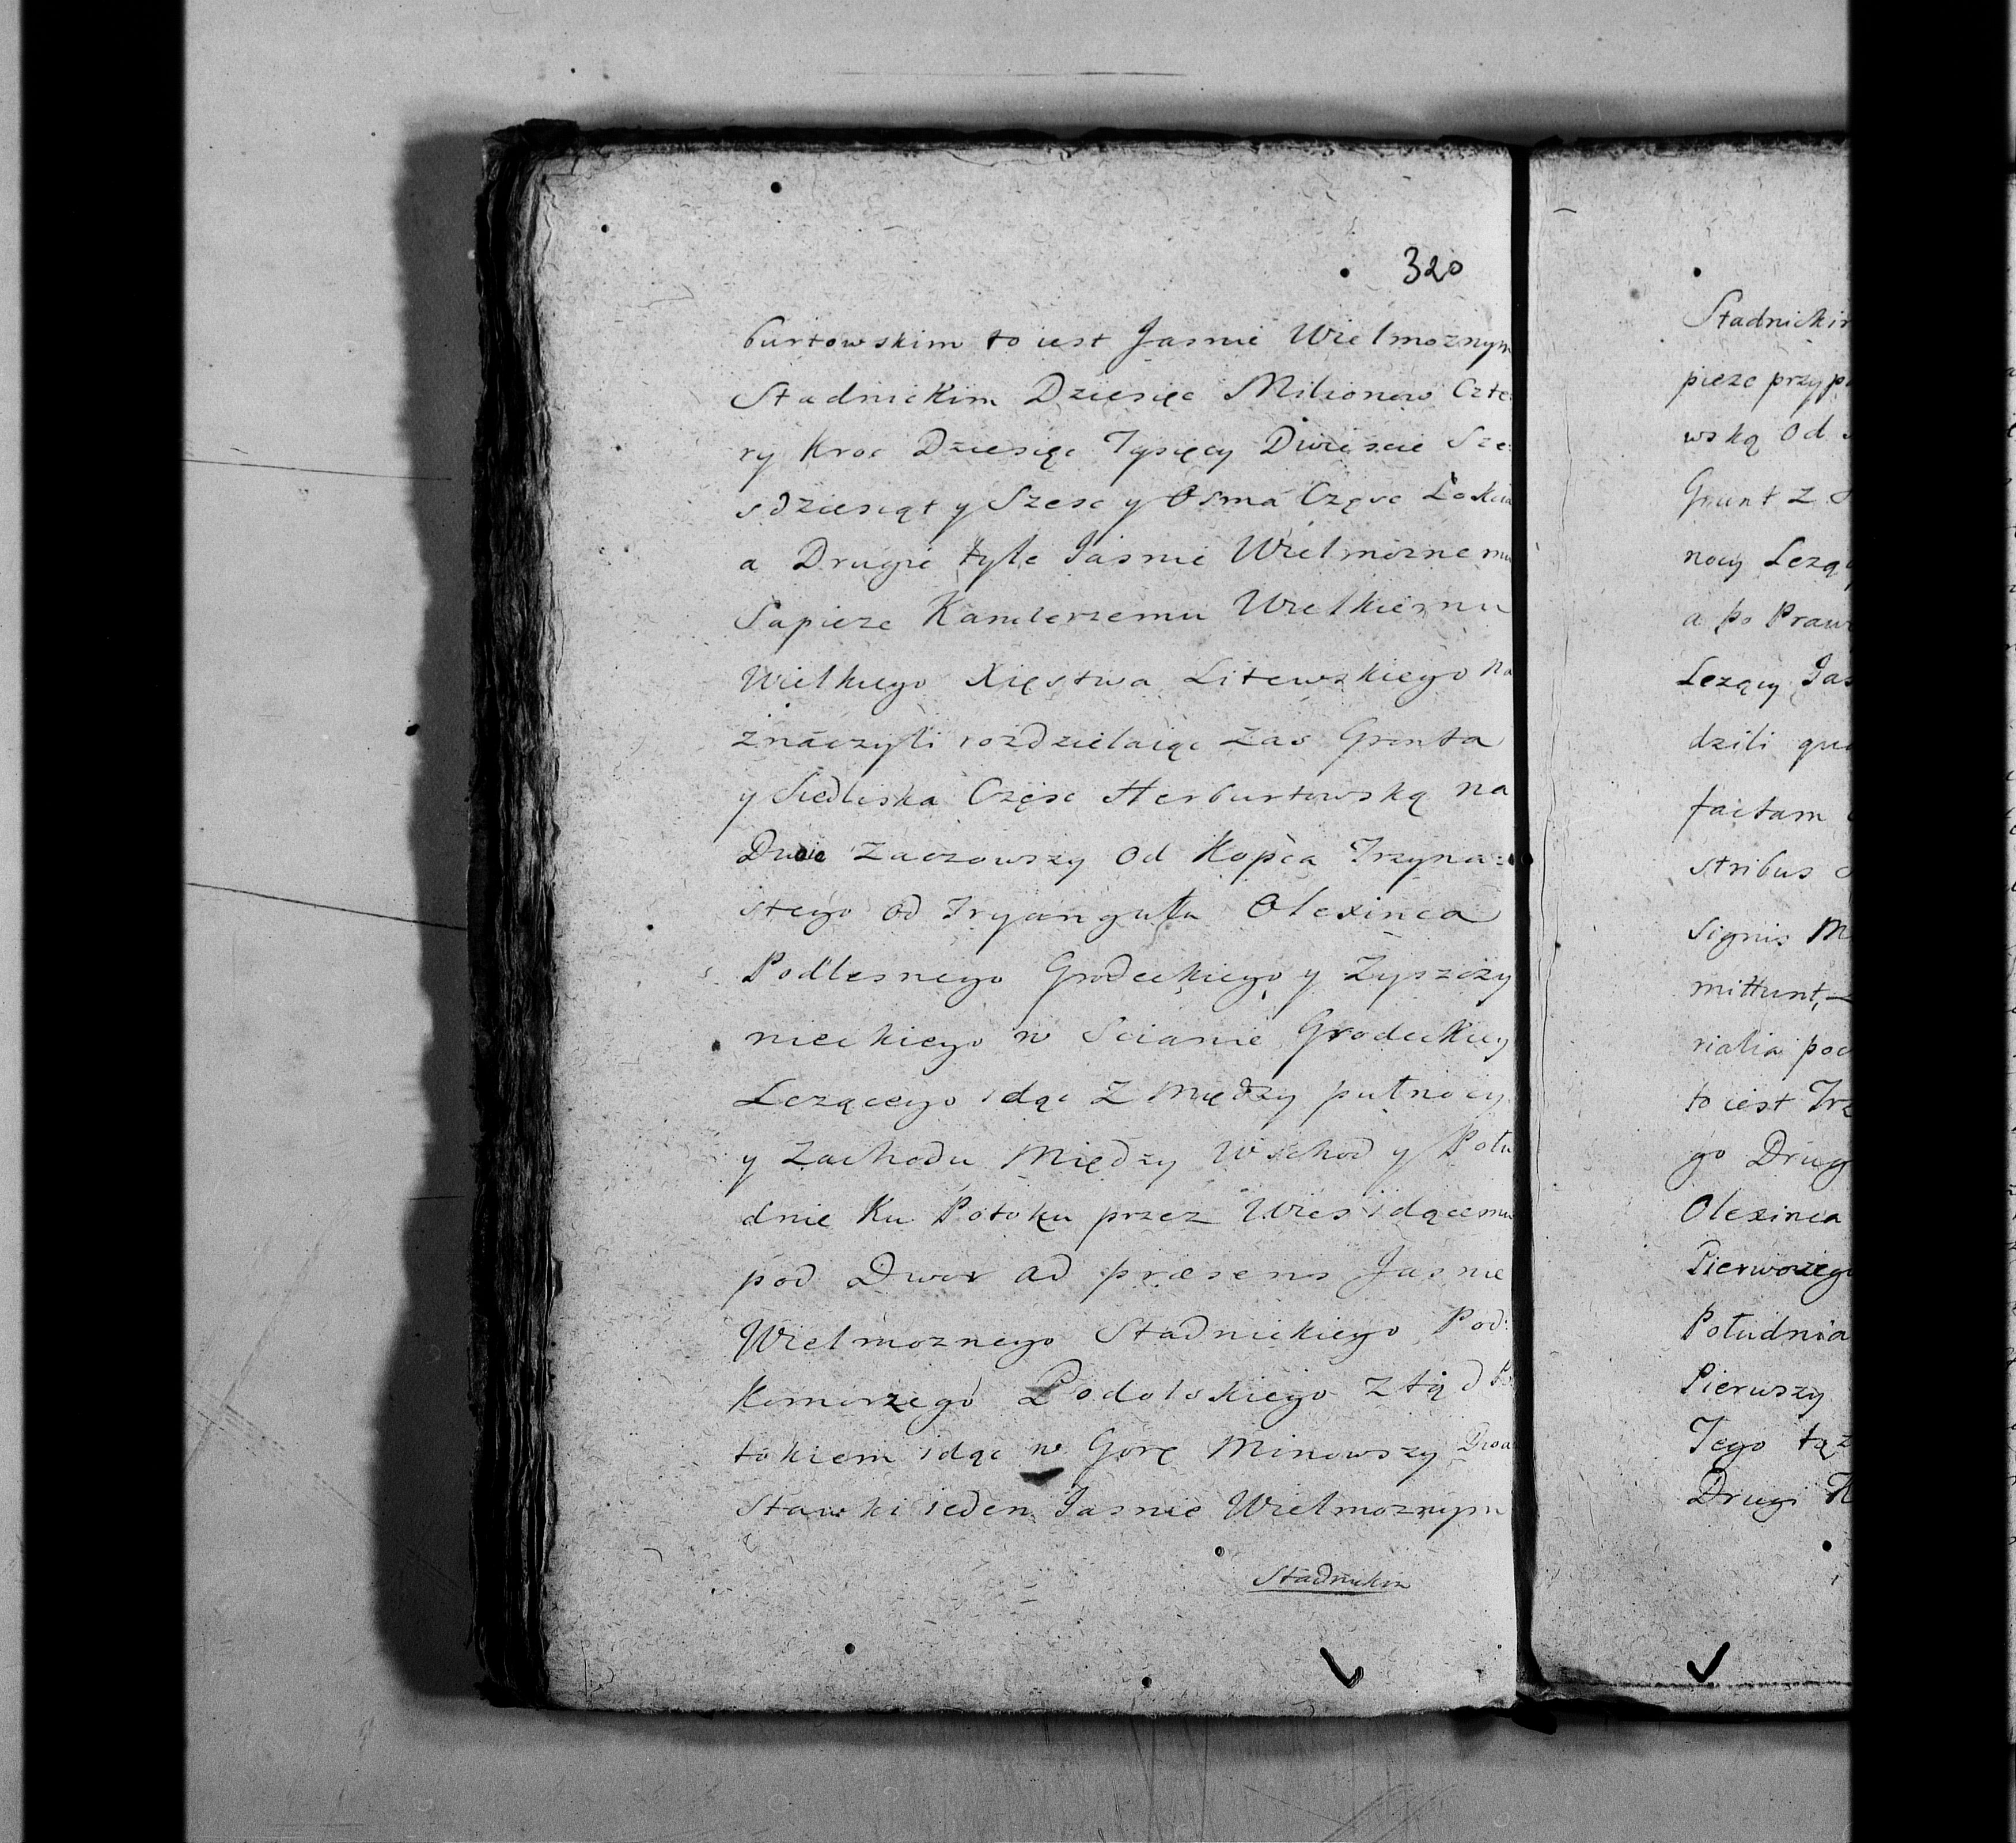 320
burtowskim to iest Jasnie Wielmoznym
Stadnickim Dziesięc Milionow Czte:
ry Kroc Dziesięc Tysięcy Dwiescie Sze:
sdziesiąt y Szesc y Osma Częsc Łokcia
a Drugie tyle Jasnie Wielmoznemu
Sapieze Kanclerzemu Wielkiemu
Wielkiego Xięstwa Litewskiego na
znaczyli rozdzielaiąc zas Grunta
y Siedliska Częsc Herburtowską na
Dwie Zaczowszy od Kopca Trzyna:
stego od Tryangułu Olexinca
Podlesnego Grodeckiego y Zyszczy
nieckiego w Scianie Grodeckiey
Lezącego idąc z między pułnocy
y Zachodu Między Wschod y Połu
dnie Ku Potoku przez Wies idącemu
pod Dwor ad præsens Jasnie
Wielmoznego Stadnickiego Pod:
Komorzego Podolskiego ztąd Po
tokiem idąc w Gorę Minowszy Dwa
Stawki ieden Jasnie Wielmoznym
Stadnickim
Stadnickim
pieze przy
wską od
Grunt z
nocy Lezą
a po Praw
Lezący Jas
dzili
factam
stribus
Signis M
mittunt,
rialia
to iest Trz
go Drug
Olexinca
Pierwszego
Południa
Pierwszy
Tego
Drugi K